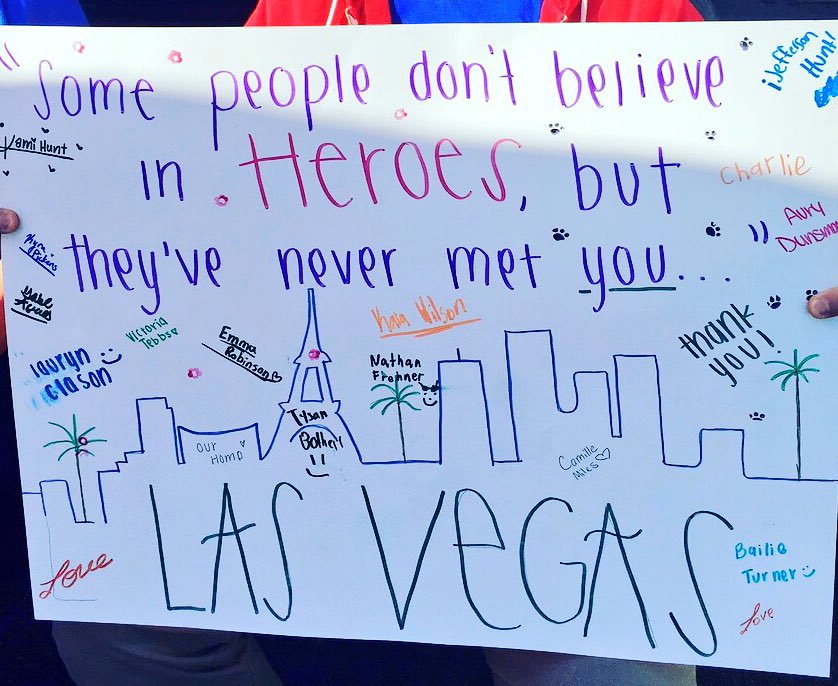 "Some people don't believe
¡Jefferson
Hunt!
Kami Hunt
in Heroes, but
Charlie
they've never met you... "
Aury
Dunsmore
Kaia Wilson
Victoria
Tebbs
Emma
Robinson
thank
you!
lauryn
clason
Nathan
Frohner
Tysan
our
Home
Camille
Miles
LAS VEGAS
Love
Bailie
Turner
Love